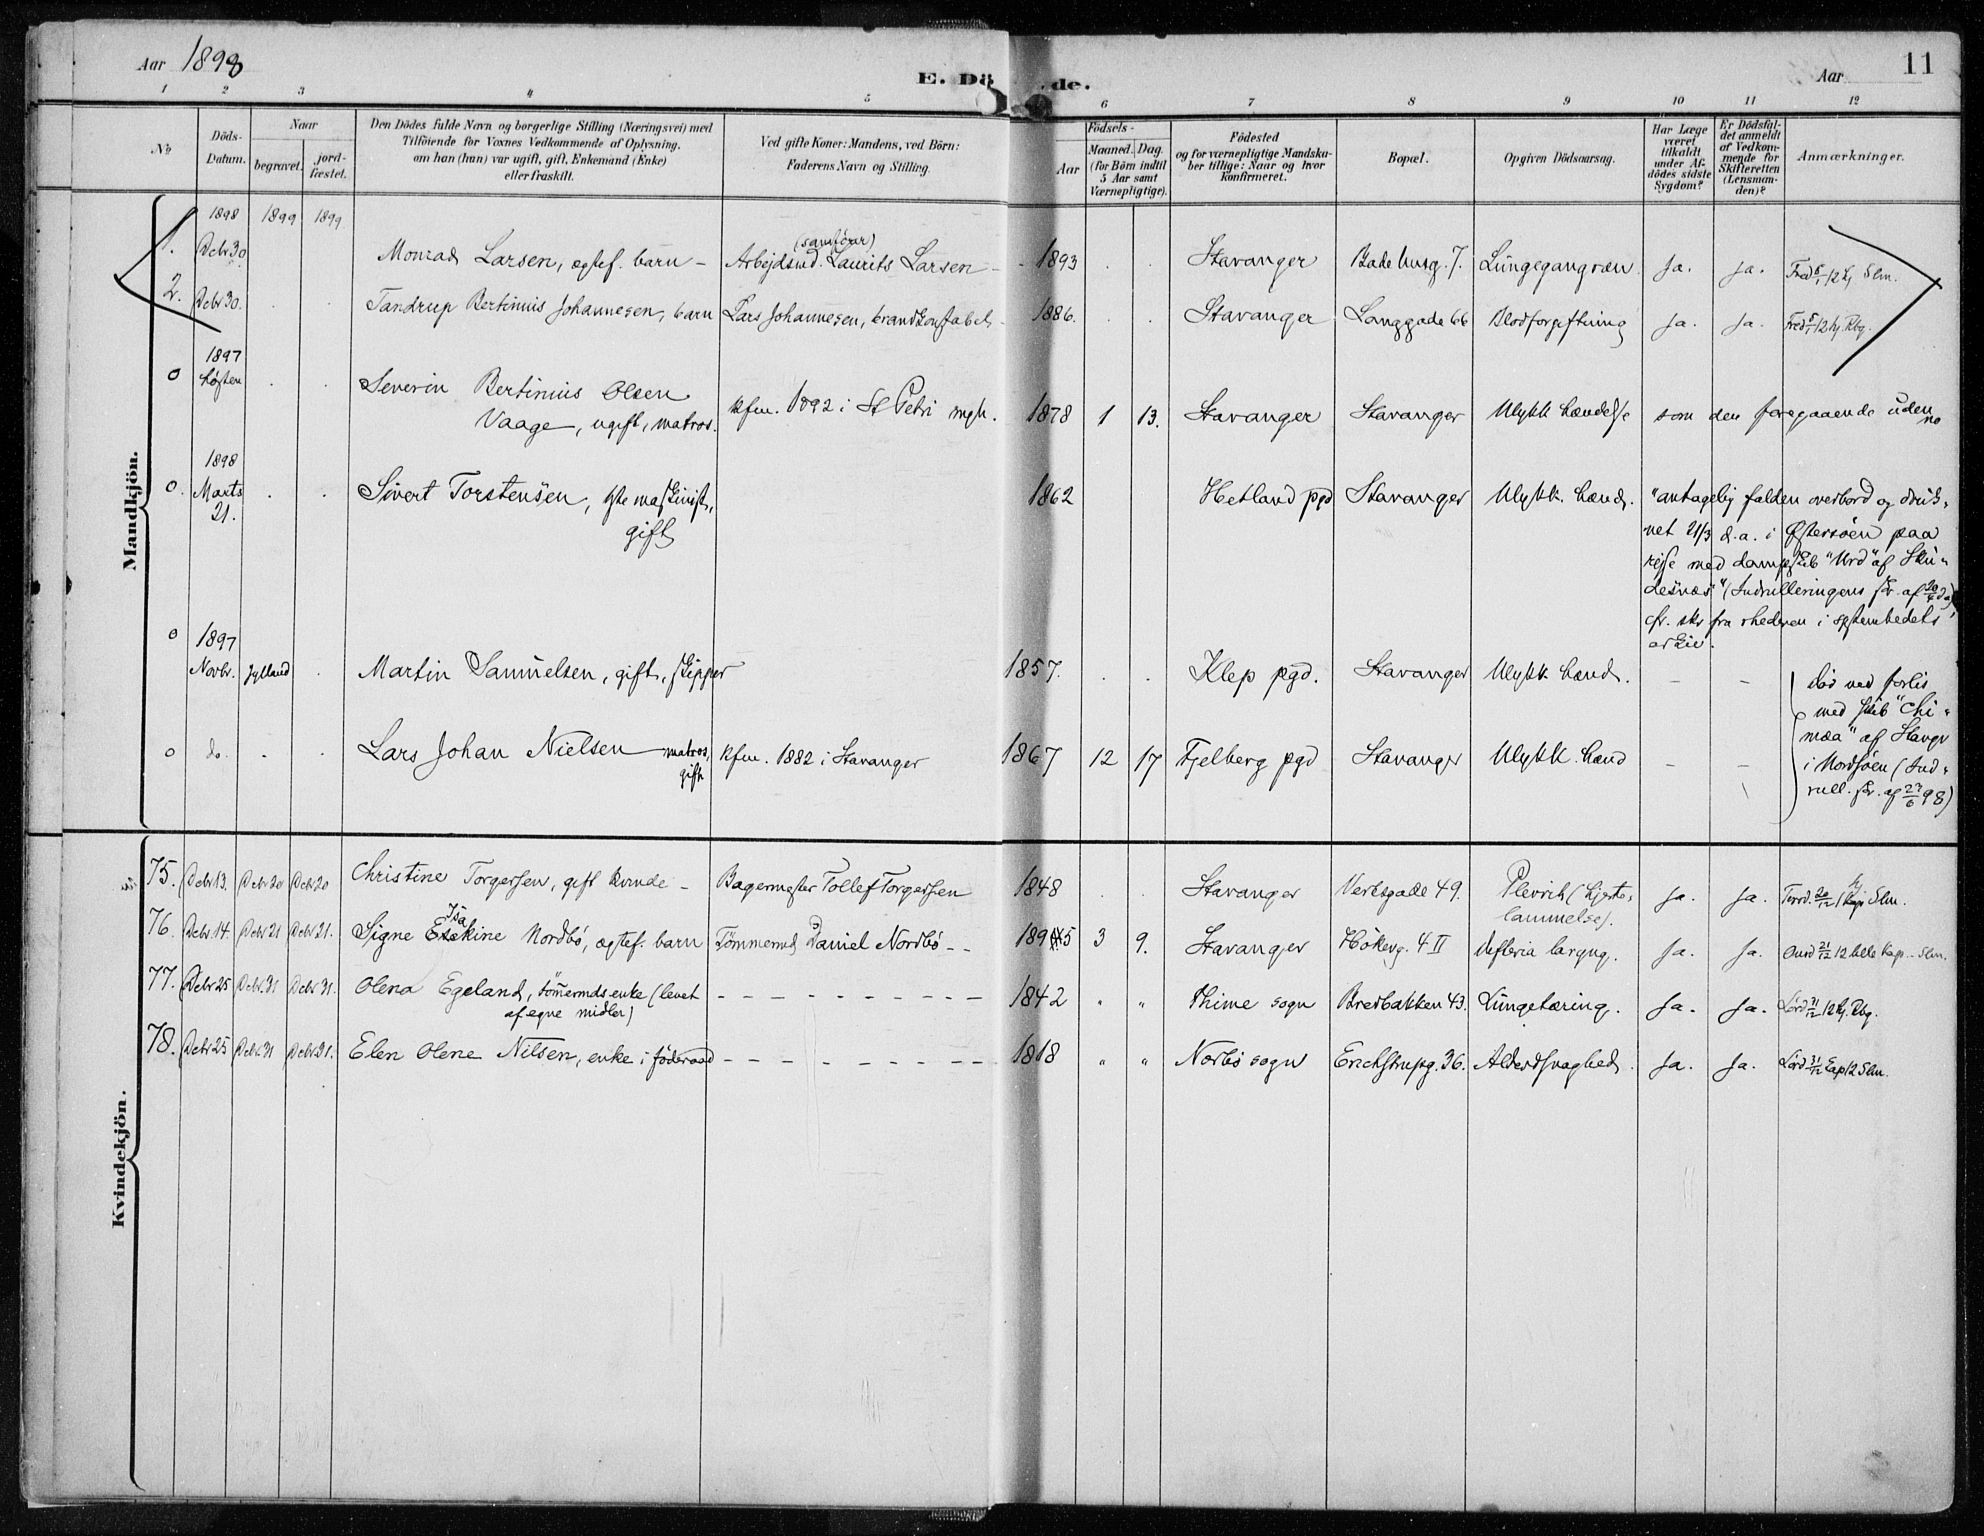 Aar 1898
E. Dö de.
Aar
11
1 2 3 4 5 6 7 8 9 10 11 12
No
Döds-Datum.
Naar
begravet.
jord-fæstet.
Den Dödes fulde Navn og borgerlige Stilling (Næringsvei) med
Tilföiende for Voxnes Vedkommende af Oplysning,
om han (hun) var ugift, gift, Enkemand (Enke)
eller fraskilt.
Ved gifte Koner: Mandens, ved Börn:
Faderens Navn og Stilling.
Födsels-
Aar
Maaned. Dag.
(for Börn indtil
5 Aar samt
Værnepligtige).
Födested
og for værnepligtige Mandska-
ber tillige: Naar og hvor
konfirmeret.
Bopæl.
Opgiven Dödsaarsag.
Har Læge
været
tilkaldt
under Af-
dödes sidste
Sygdom?
Er Dödsfal-
det anmeldt
af Vedkom-
mende for
Skifteretten
(Lensman-
den)?
Anmærkninger.
Mandkjön.
1898 1899 1899
1. Decbr 30 Monrad Larsen, ægtef. barn - Arbejdsmd. (sandförer) Laurits Larsen - 1893 Stavanger Badehusg. 7. Lungegangræn Ja. Ja. Fred 6/1 12 kj Slm.
2. Decbr 30. Tandrup Bertinius Johannesen, barn Lars Johannesen, brandkonstabel - 1886. Stavanger Langgade 66 Blodforgiftning Ja. Ja. Fred 6/1 12 kj. Rbg.
1897
0 høsten Severin Bertinius Olsen
Vaage, ugift, matros. kfm. 1892 i St Petri mgh. 1878 1 13. Stavanger Stavanger Ulykk hændelse som den foregaaende uden no
1898
0. Marts
21. Sivert Torstensen, 1ste maskinist,
gift 1862 Hetland pgd Stavanger Ulykk. hænd. "antagelig falden overbord og druk-
net 21/3 d.a. i Østersøen paa
rejse med dampskib "Urd" af Sku-
desnæs" (Indrulleringens skr. af 20/4 d.a),
cfr. skr fra rhederen i systembedets
arkiv.
1897
0 Novbr. Jylland Martin Samuelsen, gift, skipper 1857. Klep pgd. Stavanger Ulykk hænd. - -
0 do. Lars Johan Nielsen matros,
gift kfm. 1882 i Stavanger 1867 12 17 Fjelberg pgd Stavanger Ulykk. hænd - -
død ved forlis
med skib "Chi-
mæa" af Stavgr
i Nordsøen (Ind-
rull. skr. af 27/6 98)
Kvindekjön.
75. Decbr 13. Decbr 20 Decbr 20 Christine Torgersen, gift kvinde - Bagermester Tollef Torgersen 1848 Stavanger Verksgade 49. Plevrit (Hjerte-
lammelse). Ja. Ja. Tirsd. 20/12 1 kap Slm.
76. Decbr 14. Decbr 21 Decbr 21. Signe Isakine Nordbö, ægtef. barn Tömmermd Daniel Nordbö - - 1895 3 9. Stavanger Hökerg. 4 II difteria laryng. Ja. Ja. Onsd 21/12 12 lille kap. - Slm.
77. Decbr 25 Decbr. 31 Decbr 31. Olena Egeland, tömermds enke (levet
af egne midler) - - - - - - - - - - 1842 " " Thime sogn Bredbakken 43. Lungetæring. Ja. Ja. Lörd 31/12 12 kj. Rbg.
78. Decbr 25 Decbr 31 Decbr 31. Elen Olene Nilsen, enke i föderaad - - - - - - - - - - 1818 " " Norbö sogn Erichstrupg. 36. Alderdsvaghed. Ja. Ja. Lörd 31/12 kap 12 Slm.